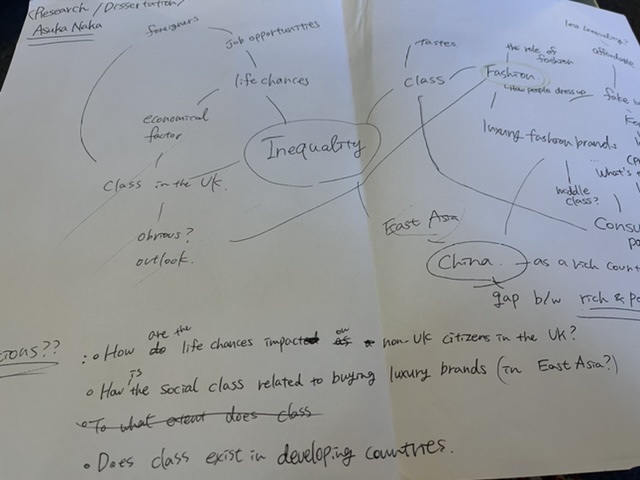 (Research / Dissertation)
Asuka Naka
foreigners
Job opportunities
life chances
economical
factor
Inequality
Class in the UK.
obvious?
outlook.
Tastes
Class
the role of
fashion
Fashion
How people dress up
less
affordable
fake
luxury fashion brands
What's
middle
class?
East Asia
China.
as a rich
gap b/w rich &
??
How are the life chances impacted on non UK citizens in the UK?
How is the social class related to buying luxury brands (in East Asia?)
To what extent does class
Does class exist in developing countries.